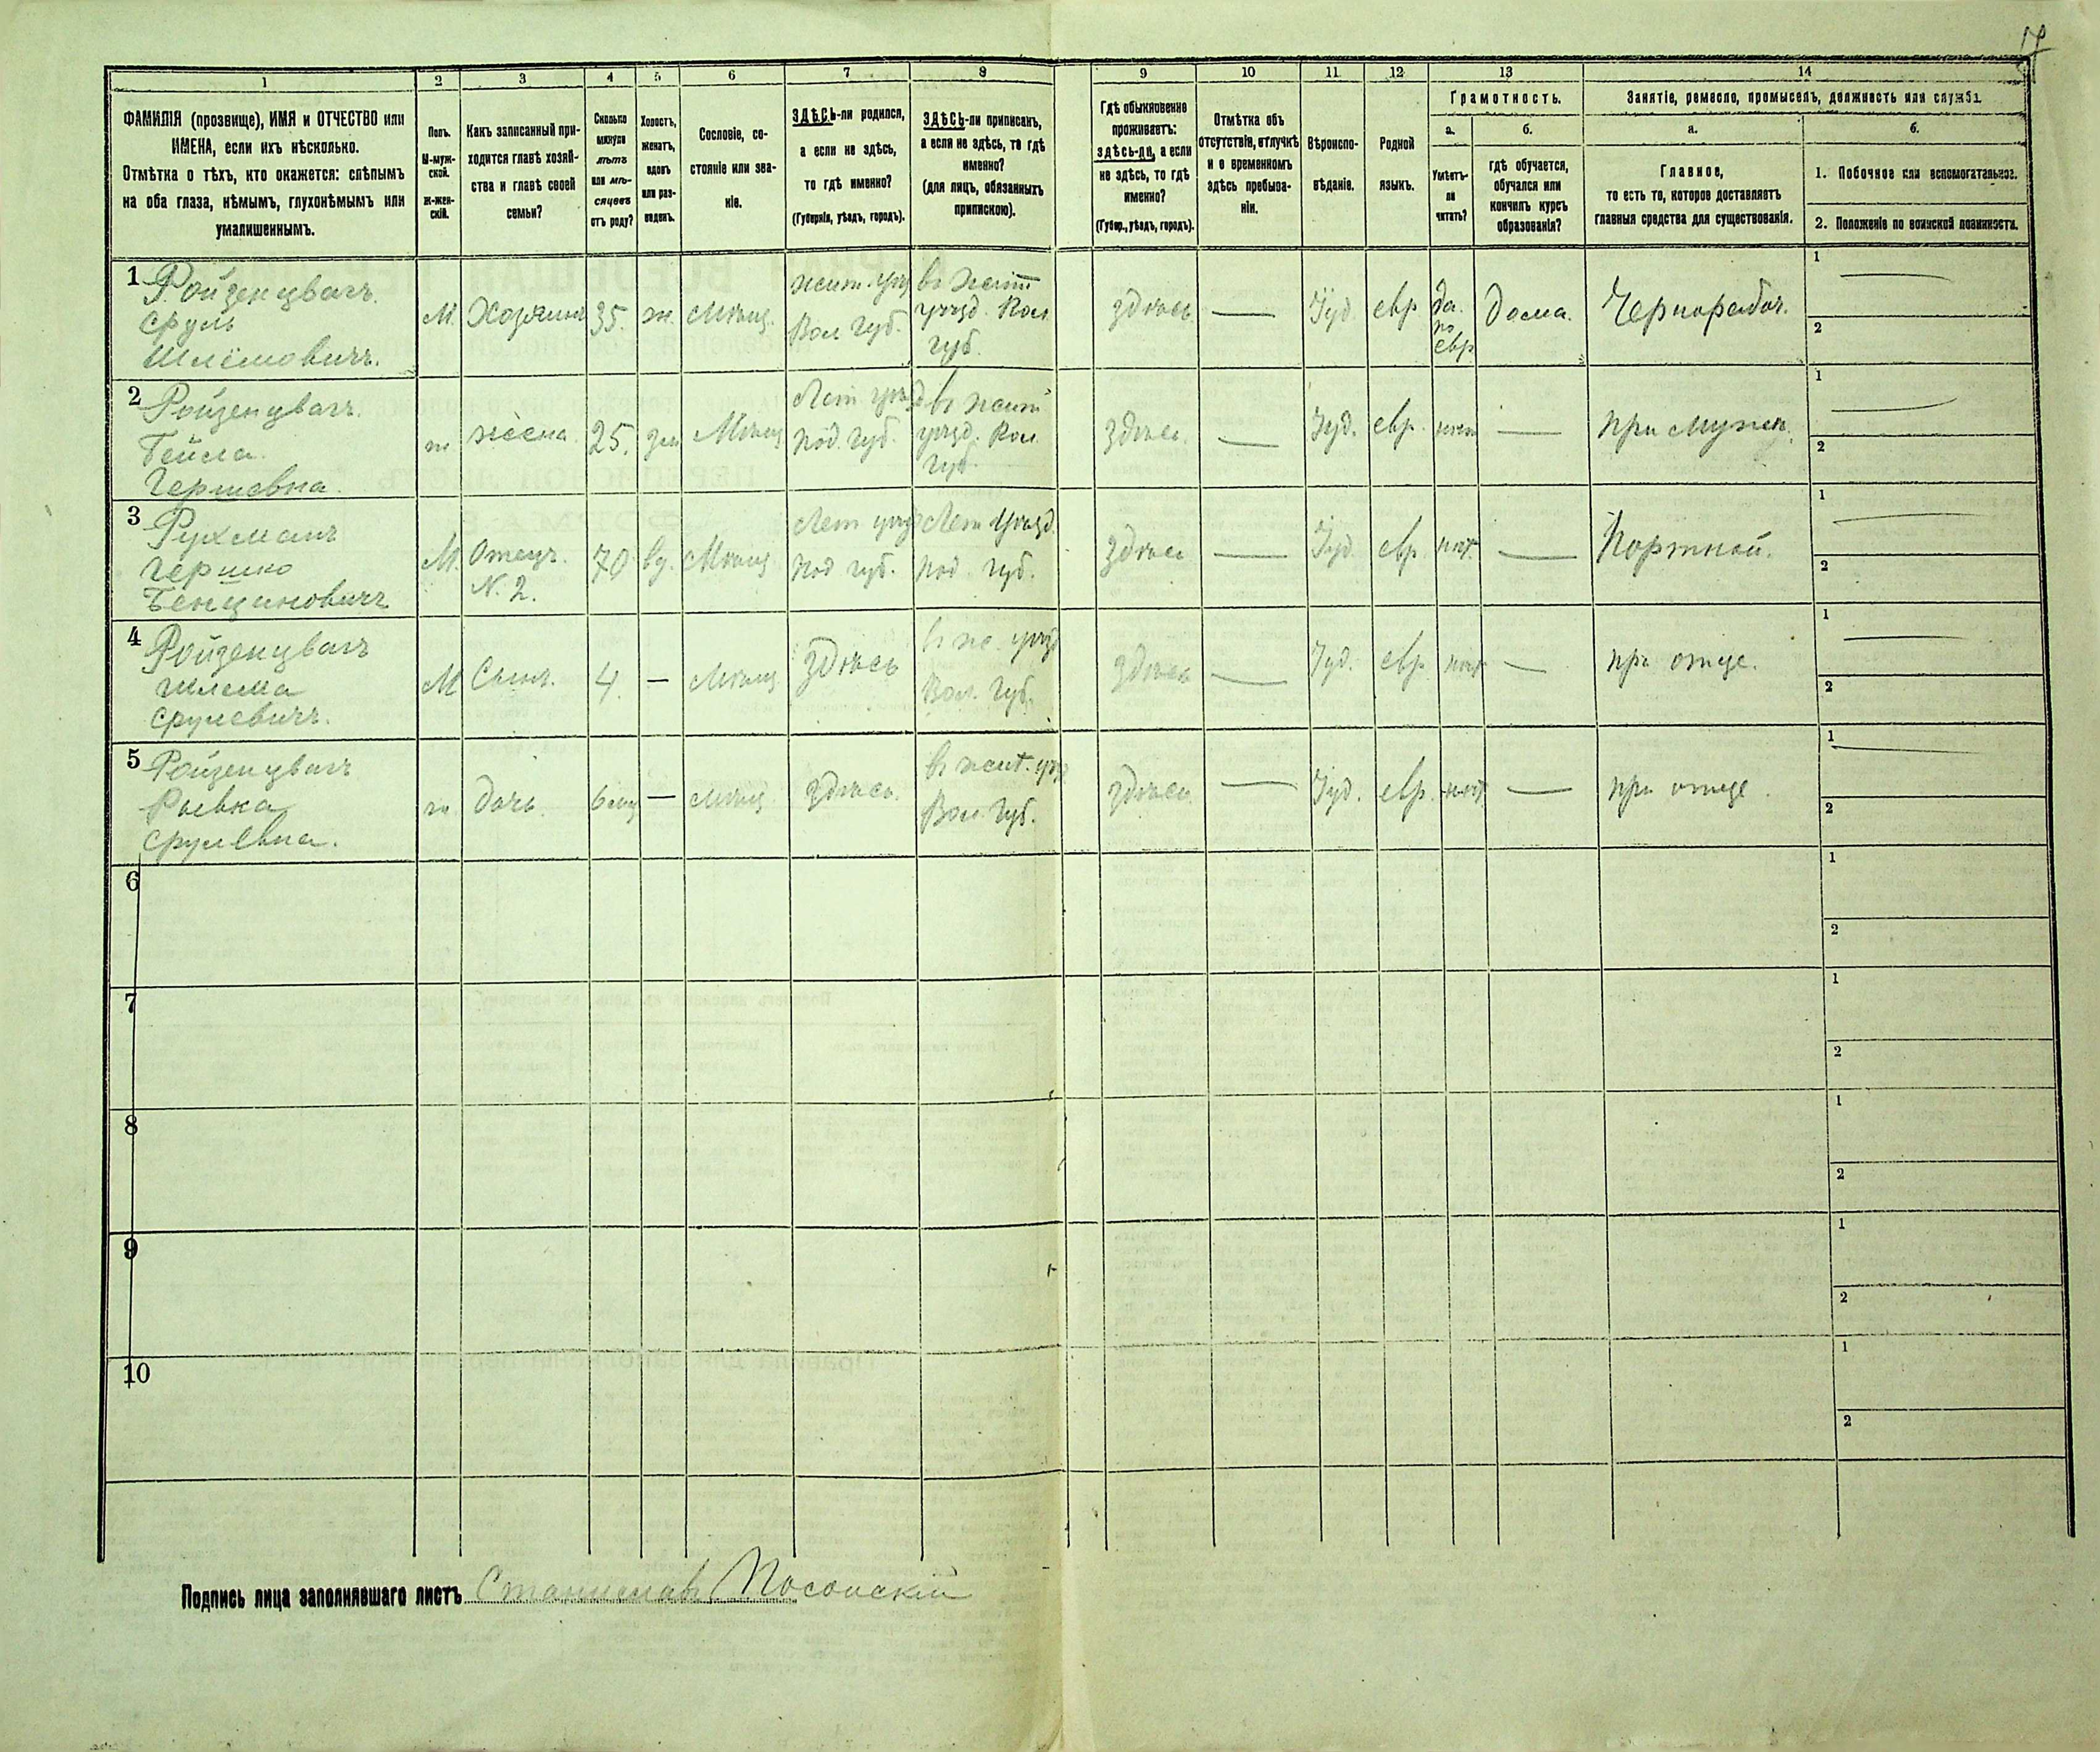 17
1 2 3 4 5 6 7 8 9 10 11 12 13 14
ФАМИЛІЯ (прозвище), ИМЯ и ОТЧЕСТВО или
ИМЕНА, если ихъ нѣсколько.
Отмѣтка о тѣхъ, кто окажется: слѣпымъ
на оба глаза, нѣмымъ, глухонѣмымъ или
умалишеннымъ.
Полъ.
М-муж-
ской.
Ж-жен-
скій.
Какъ записанный при-
ходится главѣ хозяй-
ства и главѣ своей
семьи?
Сколько
минуло
лѣтъ
или мѣ-
сяцевъ
отъ роду?
Холостъ,
женатъ,
вдовъ
или раз-
веденъ.
Сословіе, со-
стояніе или зва-
ніе.
ЗДѢСЬ-ли родился,
а если не здѣсь,
то гдѣ именно?
(Губернія, уѣздъ, городъ).
ЗДѢСЬ-ли приписанъ,
а если не здѣсь, то гдѣ
именно?
(для лицъ, обязанныхъ
припискою).
Гдѣ обыкновенно
проживаетъ:
здѣсь-ли, а если
не здѣсь, то гдѣ
именно?
(Губер., уѣздъ, городъ).
Отмѣтка объ
отсутствіи, отлучкѣ
и о временномъ
здѣсь пребыва-
ніи.
Вѣроиспо-
вѣданіе.
Родной
языкъ.
Грамотность.
а.
Умѣетъ-
ли
читать?
б.
гдѣ обучается,
обучался или
кончилъ курсъ
образованія?
Занятіе, ремесло, промыселъ, должность или служба.
а.
Главное,
то есть то, которое доставляетъ
главныя средства для существованія.
б.
1. Побочное или вспомогательное.
2. Положеніе по воинской повинности.
1 Ройзенцвагъ
Сруль
Шлёмовичъ.
М. Хозяинъ 35. ж. Мѣщ.
жит. уѣзд
Вол. Губ.
въ Жит
уѣзд. Вол
губ.
здѣсь — Іуд. евр
да.
по
евр
Дома. Чернорабоч.
1 —
2
2 Ройзенцвагъ.
Бейла.
Гершевна.
ж жена 25. зам Мѣщ
Лет уѣзд
Под. Губ.
въ жит
уѣзд. Вол
губ.
здѣсь. — Іуд. евр. нѣт — при мужѣ.
1 —
2
3 Рухманъ
Гершко
Бенционовичъ
М. Отецъ
N. 2.
70 вд. Мѣщ
Лет уѣзд
Под губ.
Лет Уѣзд.
Под. губ.
здѣсь — Іуд. евр. нѣт. — Портной.
1 —
2
4 Ройзенцвагъ
Шлема
Срулевичъ.
М Сынъ. 4. — Мѣщ здѣсь
въ ж. уѣзд
Вол. Губ.
здѣсь — Іуд. евр нѣт — при отце.
1 —
2
5 Ройзенцвагъ
Рывка
Срулевна.
ж дочь. 6 мц — Мѣщ здѣсь.
въ жит. уѣз
Вол. Губ.
здѣсь — Іуд. евр. нѣт — при отце.
1 —
2
6
1
2
7
1
2
8
1
2
9
1
2
10
1
2
Подпись лица заполнявшаго листъ Станиславъ